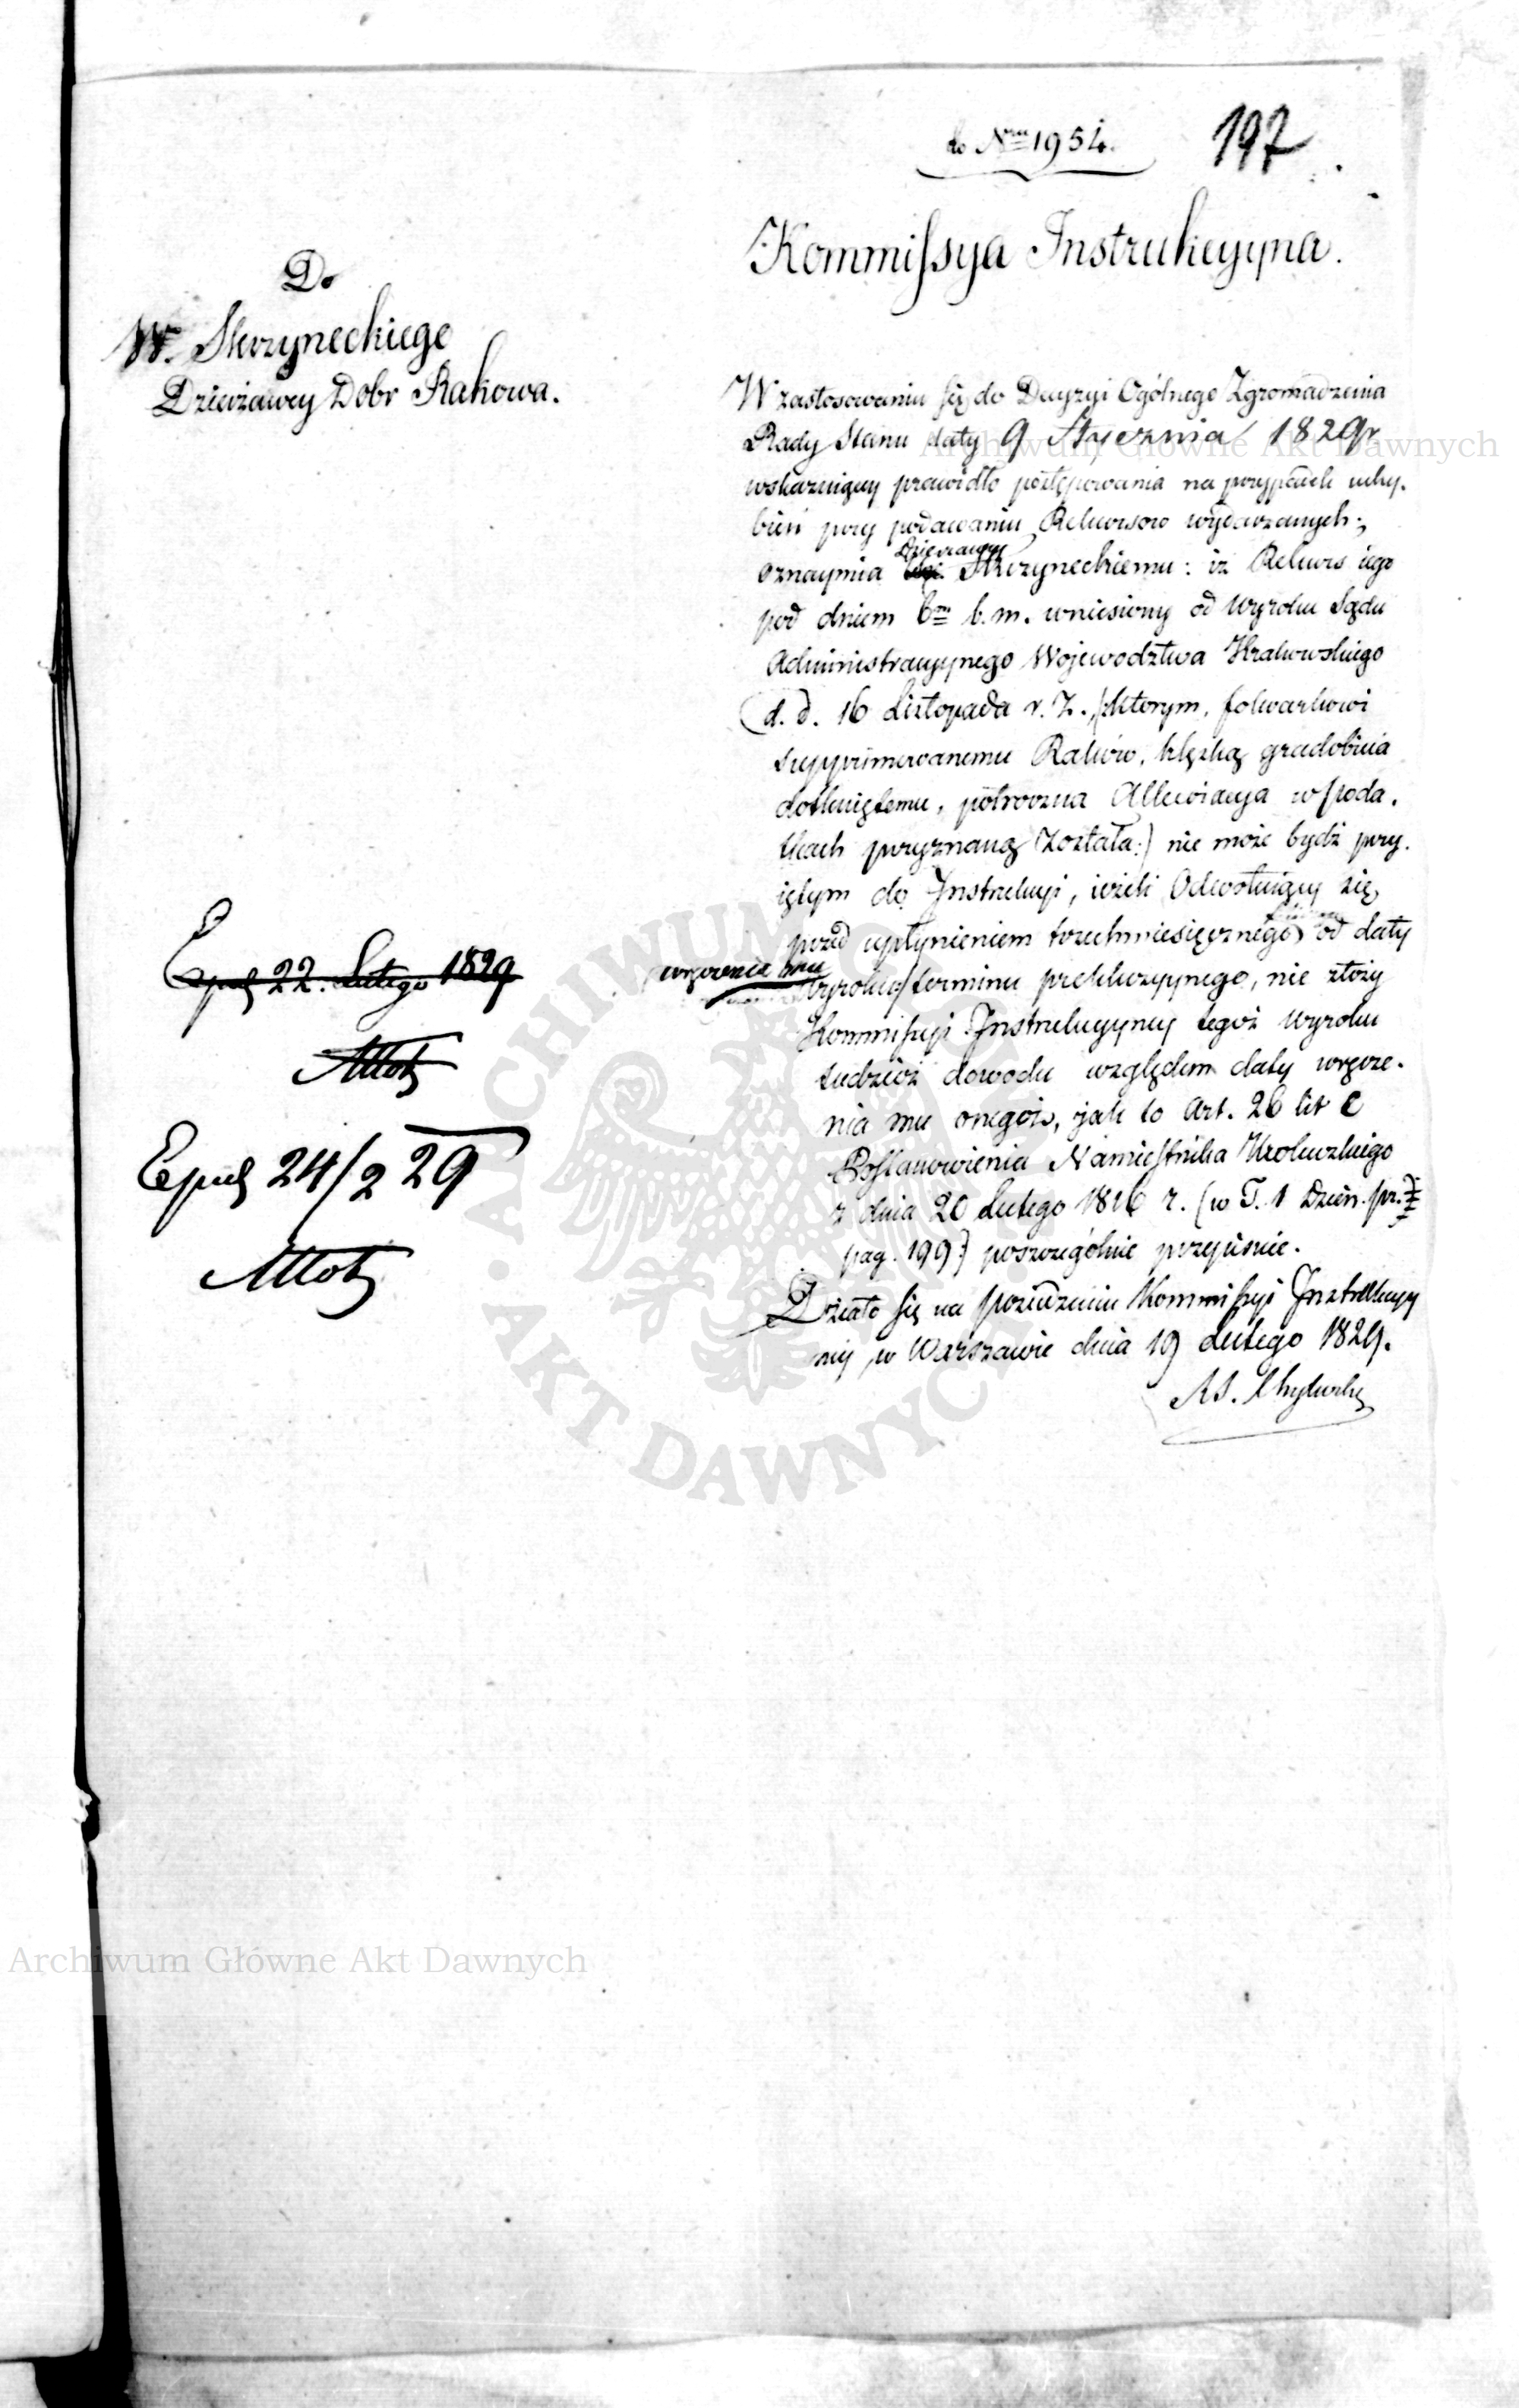 do Nru 1954.
197
Kommissya Instrukcyyna.
Do
W. Skrzyneckiego
Dzierżawcy Dobr Rakowa.
W zastosowaniu się do Decyzyi Ogólnego Zgromadzenia
Rady Stanu daty 9 Stycznia 1829 r
wskazuiący prawidło postępowania na przypadek uchy-
bień przy podawaniu Rekursow wydarzanych;
Dzierzawcy
oznaymia Skrzyneckiemu: iż Rekurs iego
pod dniem 6m b.m. wniesiony od Wyroku Sądu
Administracyynego Wojewodztwa Krakowskiego
(d. d. 16 Listopada r. z. / ktorym, folwarkowi
supprimowanemu Rakow, klęską gradobicia
dotkniętemu, półroczna Allewiacya w poda-
tkach przyznaną została:) nie może bydź przy-
iętym do Instrukcyi, ieżeli Odwołuiący się,
przed upłynieniem trzechmiesięcznego od daty
wręczenia mu
Wyroku terminu prekluzyynego, nie złoży
Kommissyi Instrukcyyney tegoż Wyroku
tudzież dowodu względem daty wręcze-
nia mu onegoż, jak to Art. 26 lit C
Postanowienia Namiestnika Krolewskiego
z dnia 20 Lutego 1816 r. (w T. 1 Dzien. pr.
pag. 199) poszczególnie przepisuie.
Działo się na posiedzeniu Kommissyi Instrukcyy
ney w Warszawie dnia 19 Lutego 1829.
Exped 22. Lutego 1829
Exped 24/2 29
Archiwum Główne Akt Dawnych
ARCHIWUM GŁÓWNE
AKT DAWNYCH
Archiwum Główne Akt Dawnych